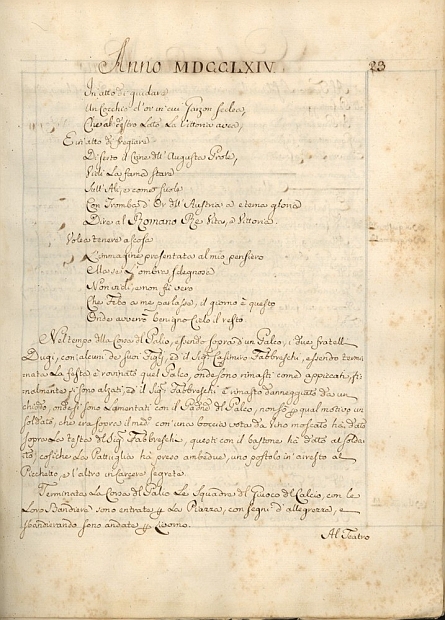 Anno MDCCLXIV. 23
In atto di guidare
Un Cocchio d'or in cui Garzon sedea,
Che al destro Lato La Vittoria avea,
E in atto di fregiare
Di serto il Crine all'Augusta Prole,
Vidi La fama stare
Sull'Ali, e come suole
Con Tromba d'Or dell'Austria a eterna gloria
Dire al Romano Rè Vita, e Vittoria.
Volea tenere ascosa
L'immagine presentata al mio pensiero
Ma sei L'ombra sdegnosa
Non vidi, e non fù vero
Che Febo a me parlasse, il giorno è questo
Onde avverrà benigno Cielo il resto.
Nel tempo della Corsa del Palio, essendo sopra d'un Palco, i due fratelli
Dugi, con alcuni de suoi Figli, ed il Sigr. Casimiro Fabbreschi, essendo termi
nata La festa è rovinato quel Palco, onde sono rimasti come appiccati, fi
nalmente si sono alzati, ed il Sigr. Fabbreschi è rimasto danneggiato da un
chiodo, onde si sono Lamentati con il Padrone del Palco, non so per qual motivo un
soldato, che era sopra il med.° con una boccia vota da vino moscato ha dato
sopra La testa del Sigr. Fabbreschi, questi con il bastone ha dato al solda
to, cosiche La Pattuglia hà preso ambedue, uno postolo in arresto al
Picchetto, e l'altro in carcere segreta.
Terminata La Corsa del Palio Le Squadre del Giuoco del Calcio, con le
Loro Bandiere sono entrate per La Piazza, con segni d'allegrezza, e
sbandierando sono andate per Livorno.
Al Teatro